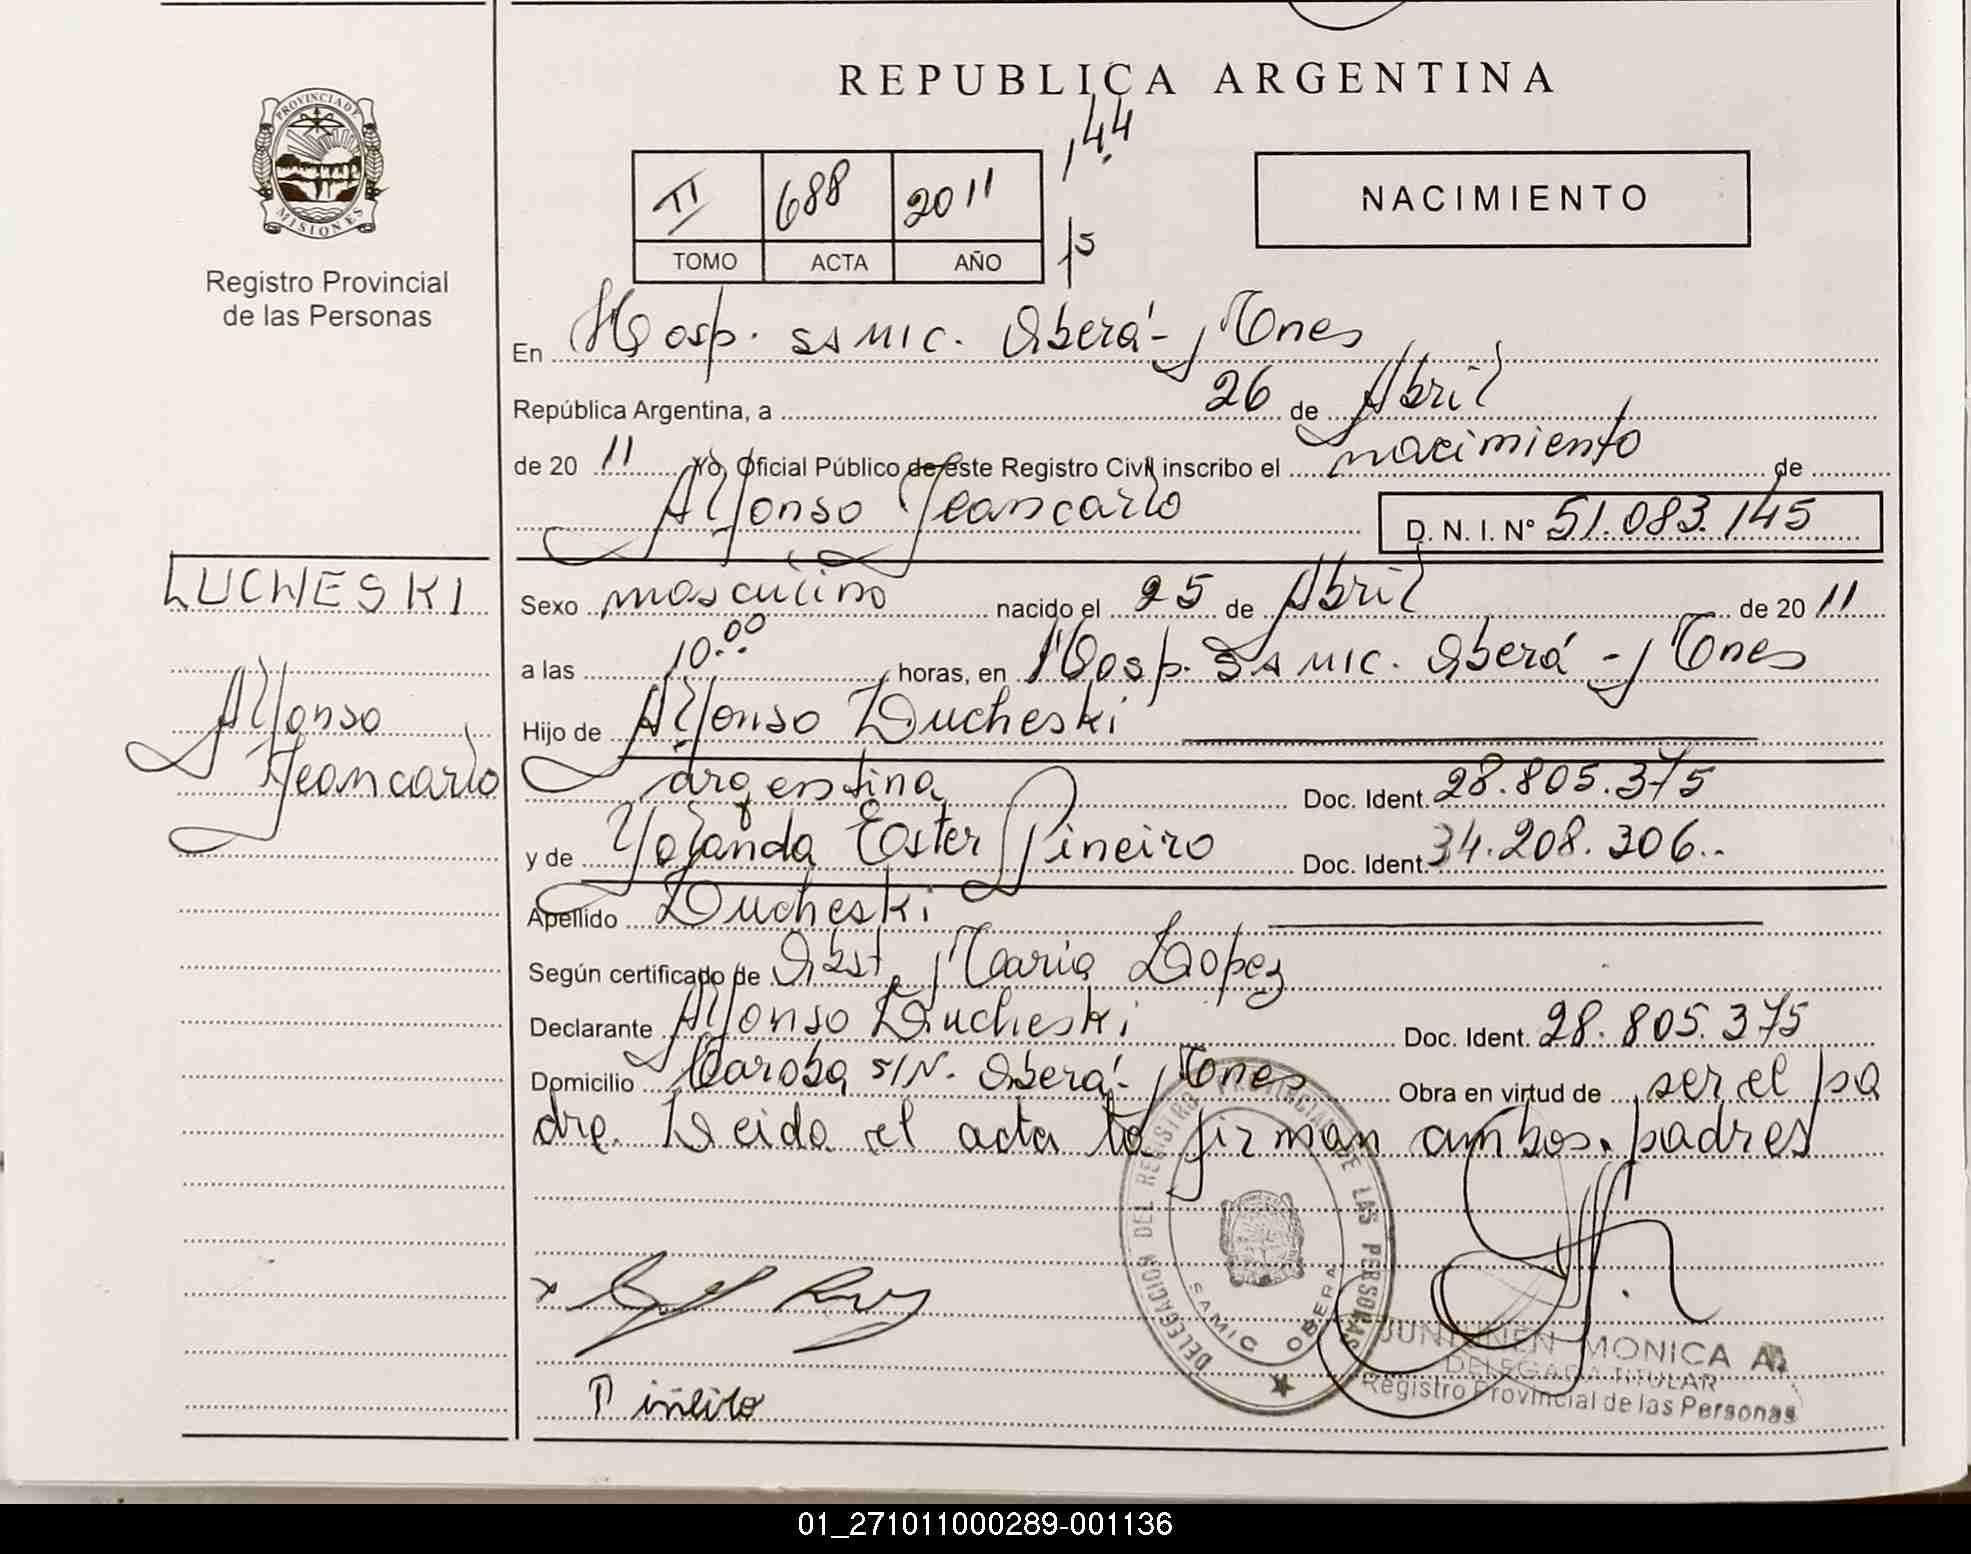 REPUBLICA ARGENTINA
PROVINCIA DE
MISIONES
Registro Provincial
de las Personas
144
II 688 2011
TOMO ACTA AÑO
NACIMIENTO
En Hosp. SAMIC. Oberá - Mnes
República Argentina, a 26 de Abril
de 20 11 Yo, Oficial Público de este Registro Civil inscribo el nacimiento de
Alfonso Jeancarlo D. N. I. N° 51.083.145
LUCHESKI
Alfonso
Jeancarlo
Sexo masculino nacido el 25 de Abril de 20 11
a las 10.00 horas, en Hosp. SAMIC. Oberá - Mnes
Hijo de Alfonso Lucheski
argentina Doc. Ident. 28.805.375
y de Yolanda Ester Pineiro Doc. Ident. 34.208.306..
Apellido Lucheski
Según certificado de Obst. Maria Lopez
Declarante Alfonso Lucheski Doc. Ident. 28.805.375
Domicilio Caroba S/N. Oberá - Mnes Obra en virtud de ser el pa
dre. Leida el acta la firman ambos padres
DELEGACION DEL REGISTRO PROVINCIAL DE LAS PERSONAS
SAMIC OBERA
JUNTUNEN MONICA A.
DELEGADA TITULAR
Registro Provincial de las Personas
01_271011000289-001136